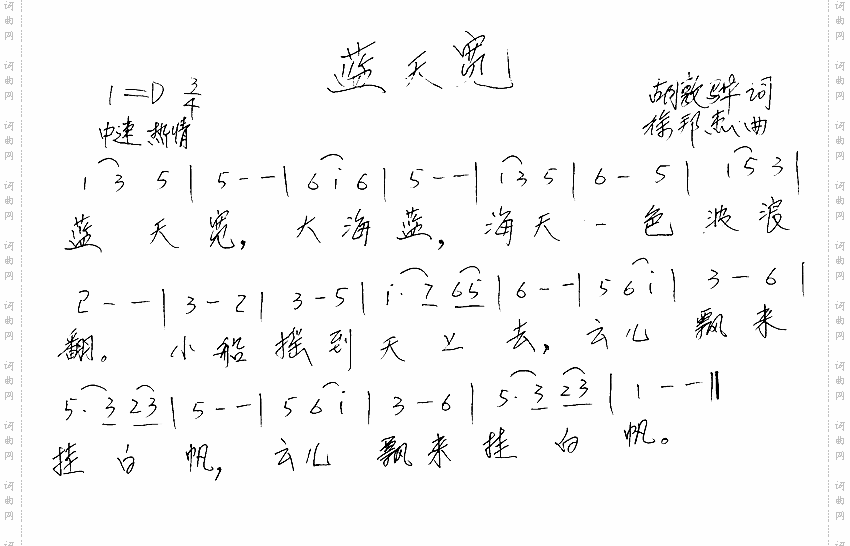 蓝天宽
1=D 3/4
中速 热情
胡敦骅 词
徐邦杰 曲
1 3 5 | 5 - - | 6 i 6 | 5 - - | i 3 5 | 6 - 5 | i 5 3 |
蓝 天 宽， 大 海 蓝， 海 天 一 色 波 浪
2 - - | 3 - 2 | 3 - 5 | i· 7 6 5 | 6 - - | 5 6 i | 3 - 6 |
翻。 小 船 摇 到 天 上 去， 云 儿 飘 来
5· 3 2 3 | 5 - - | 5 6 i | 3 - 6 | 5· 3 2 3 | 1 - - ‖
挂 白 帆， 云 儿 飘 来 挂 白 帆。
词曲网